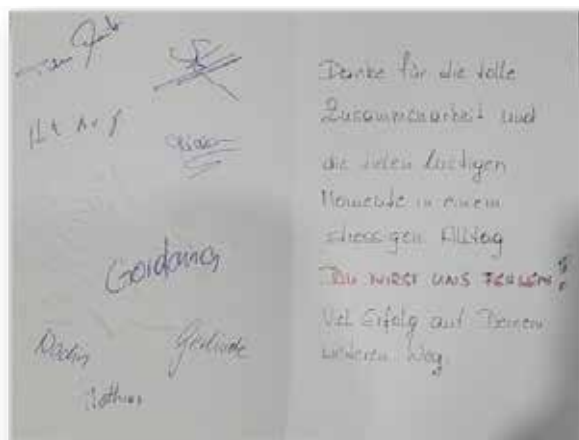 Gordana
Gerlinde
Danke für die tolle
Zusammenarbeit und
die vielen lustigen
Momente in einem
stressigen Alltag
DU WIRST UNS FEHLEN!
Viel Erfolg auf Deinem
weiteren Weg.